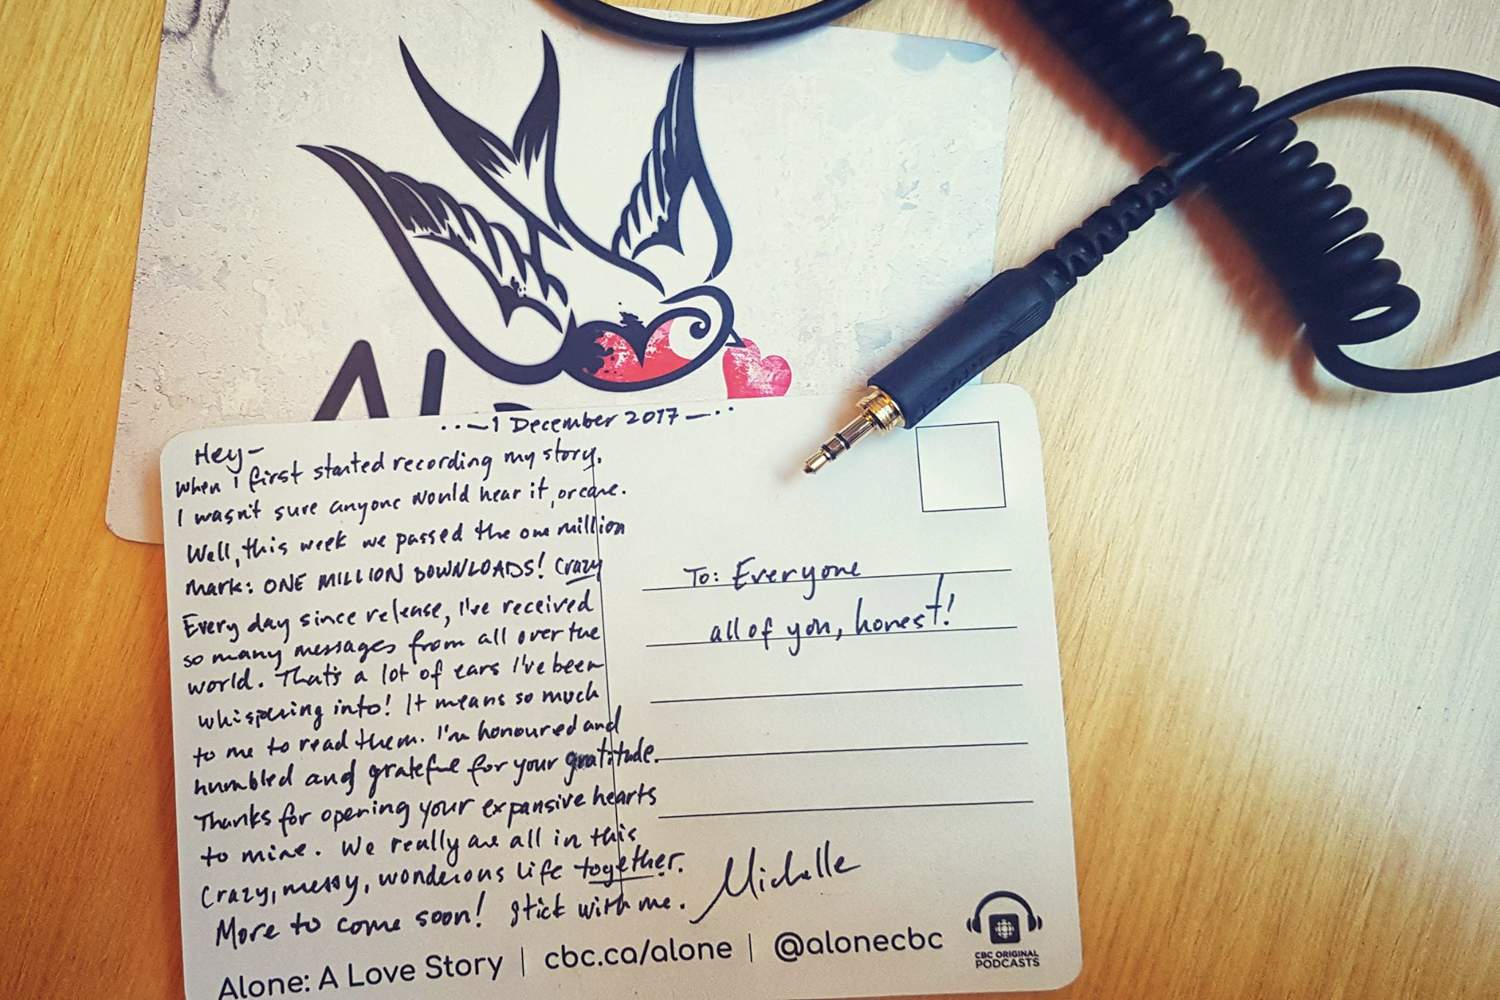 ALO
··—1 December 2017—··
Hey—
When I first started recording my story,
I wasn't sure anyone would hear it, or care.
Well, this week we passed the one million
mark: ONE MILLION DOWNLOADS! Crazy
Every day since release, I've received
so many messages from all over the
world. That's a lot of ears I've been
whispering into! It means so much
to me to read them. I'm honoured and
humbled and grateful for your gratitude.
Thanks for opening your expansive hearts
to mine. We really are all in this
crazy, messy, wonderous life together.
More to come soon! Stick with me.
Michelle
To: Everyone
all of you, honest!
Alone: A Love Story | cbc.ca/alone | @alonecbc
CBC ORIGINAL
PODCASTS